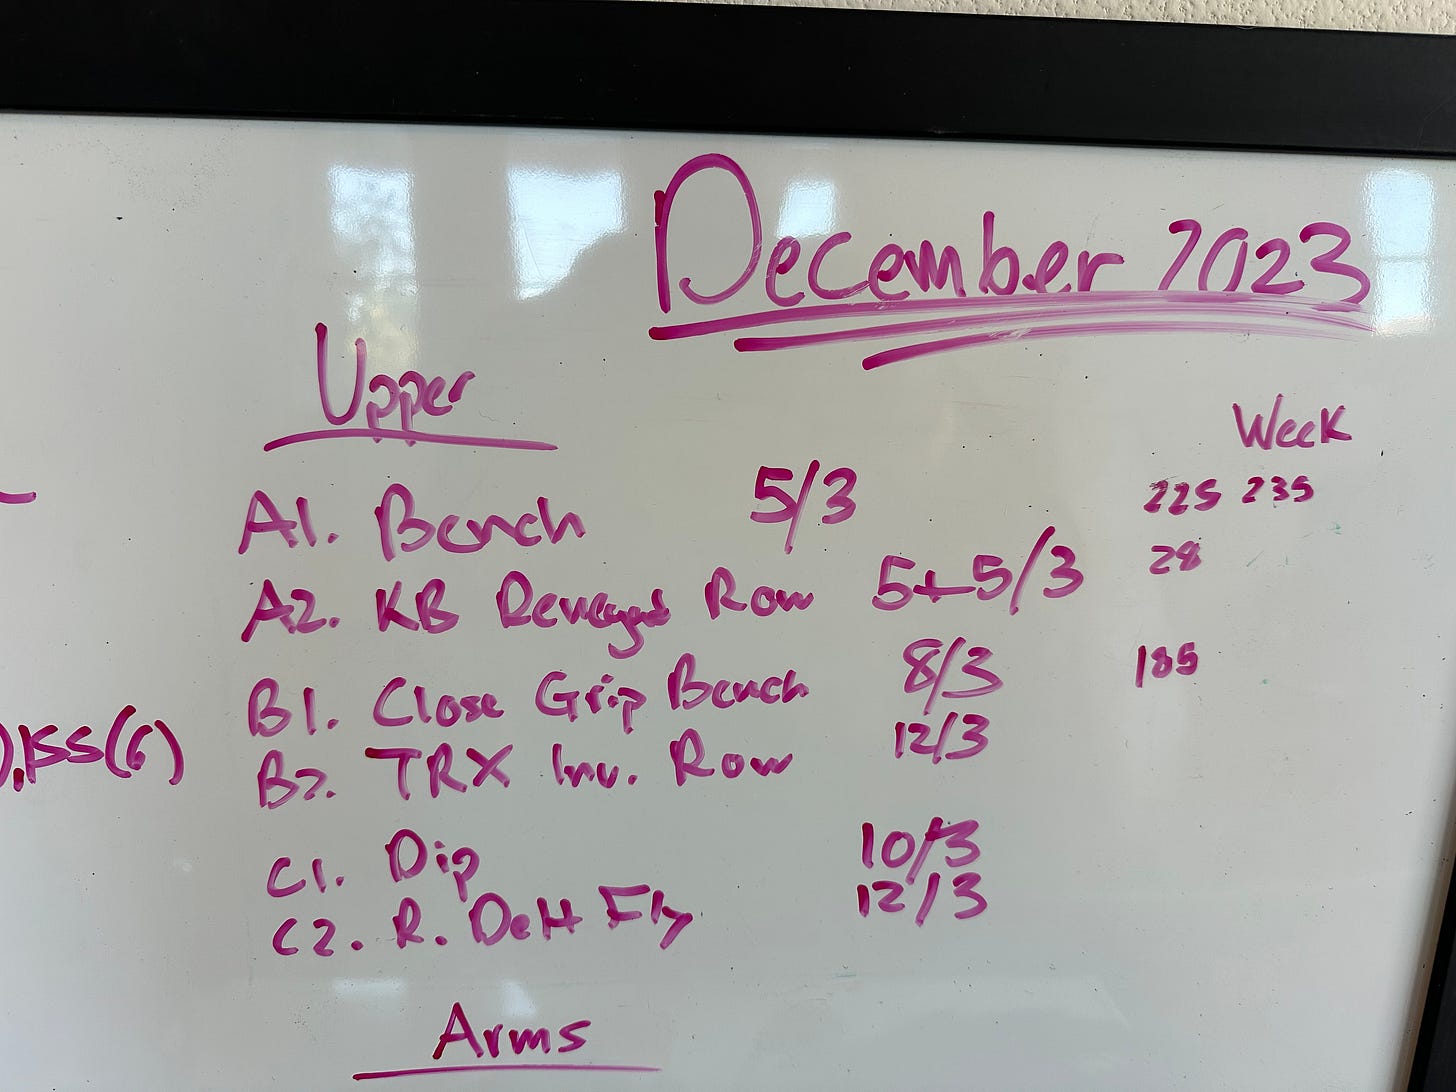 December 2023
Upper
Week
A1. Bench 5/3 225 235
A2. KB Renegade Row 5+5/3 28
B1. Close Grip Bench 8/3 185
B2. TRX Inv. Row 12/3
),155(6)
C1. Dip 10/3
C2. R. Delt Fly 12/3
Arms